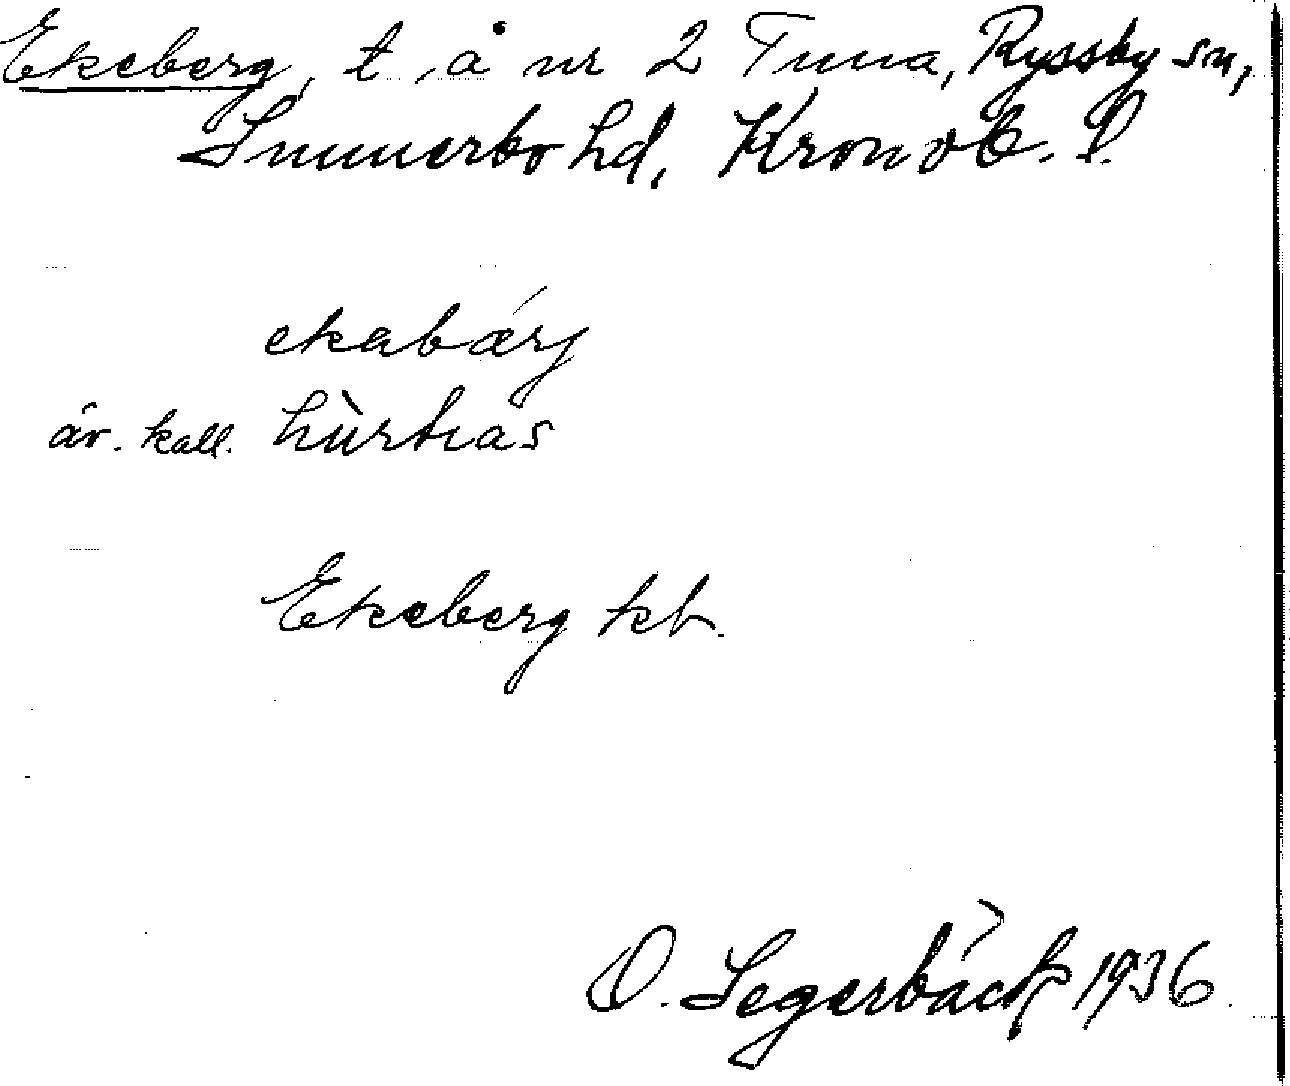 Ekeberg, t. å nr 2 Tuna, Ryssby sn,
Sunnerbo hd, Kronob. l.
ekabǽrj
äv. kall. hùrtras
Ekeberg kb.
O. Segerbäck 1936